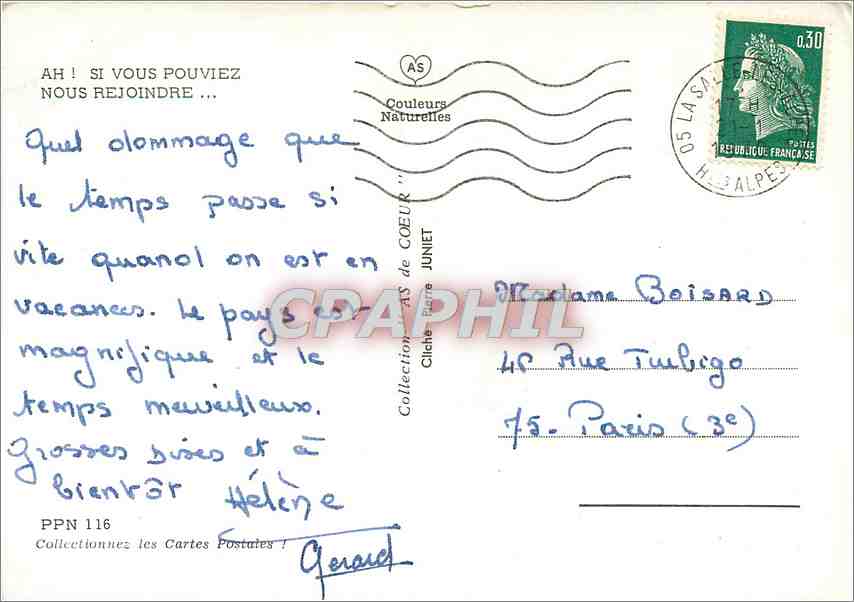 AH ! SI VOUS POUVIEZ
NOUS REJOINDRE ...
Quel dommage que
le temps passe si
vite quand on est en
vacances. Le pays est
magnifique et le
temps merveilleux.
Grosses bises et à
bientôt Hélène
Gerard
PPN 116
Collectionnez les Cartes Postales !
AS
Couleurs
Naturelles
Collection " AS de COEUR "
Cliché Pierre JUNIET
CPAPHIL
0,30
POSTES
REPUBLIQUE FRANÇAISE
05 LA SALLE
Htes ALPES
Madame BOISARD
45 Rue Turbigo
75 - Paris (3e)